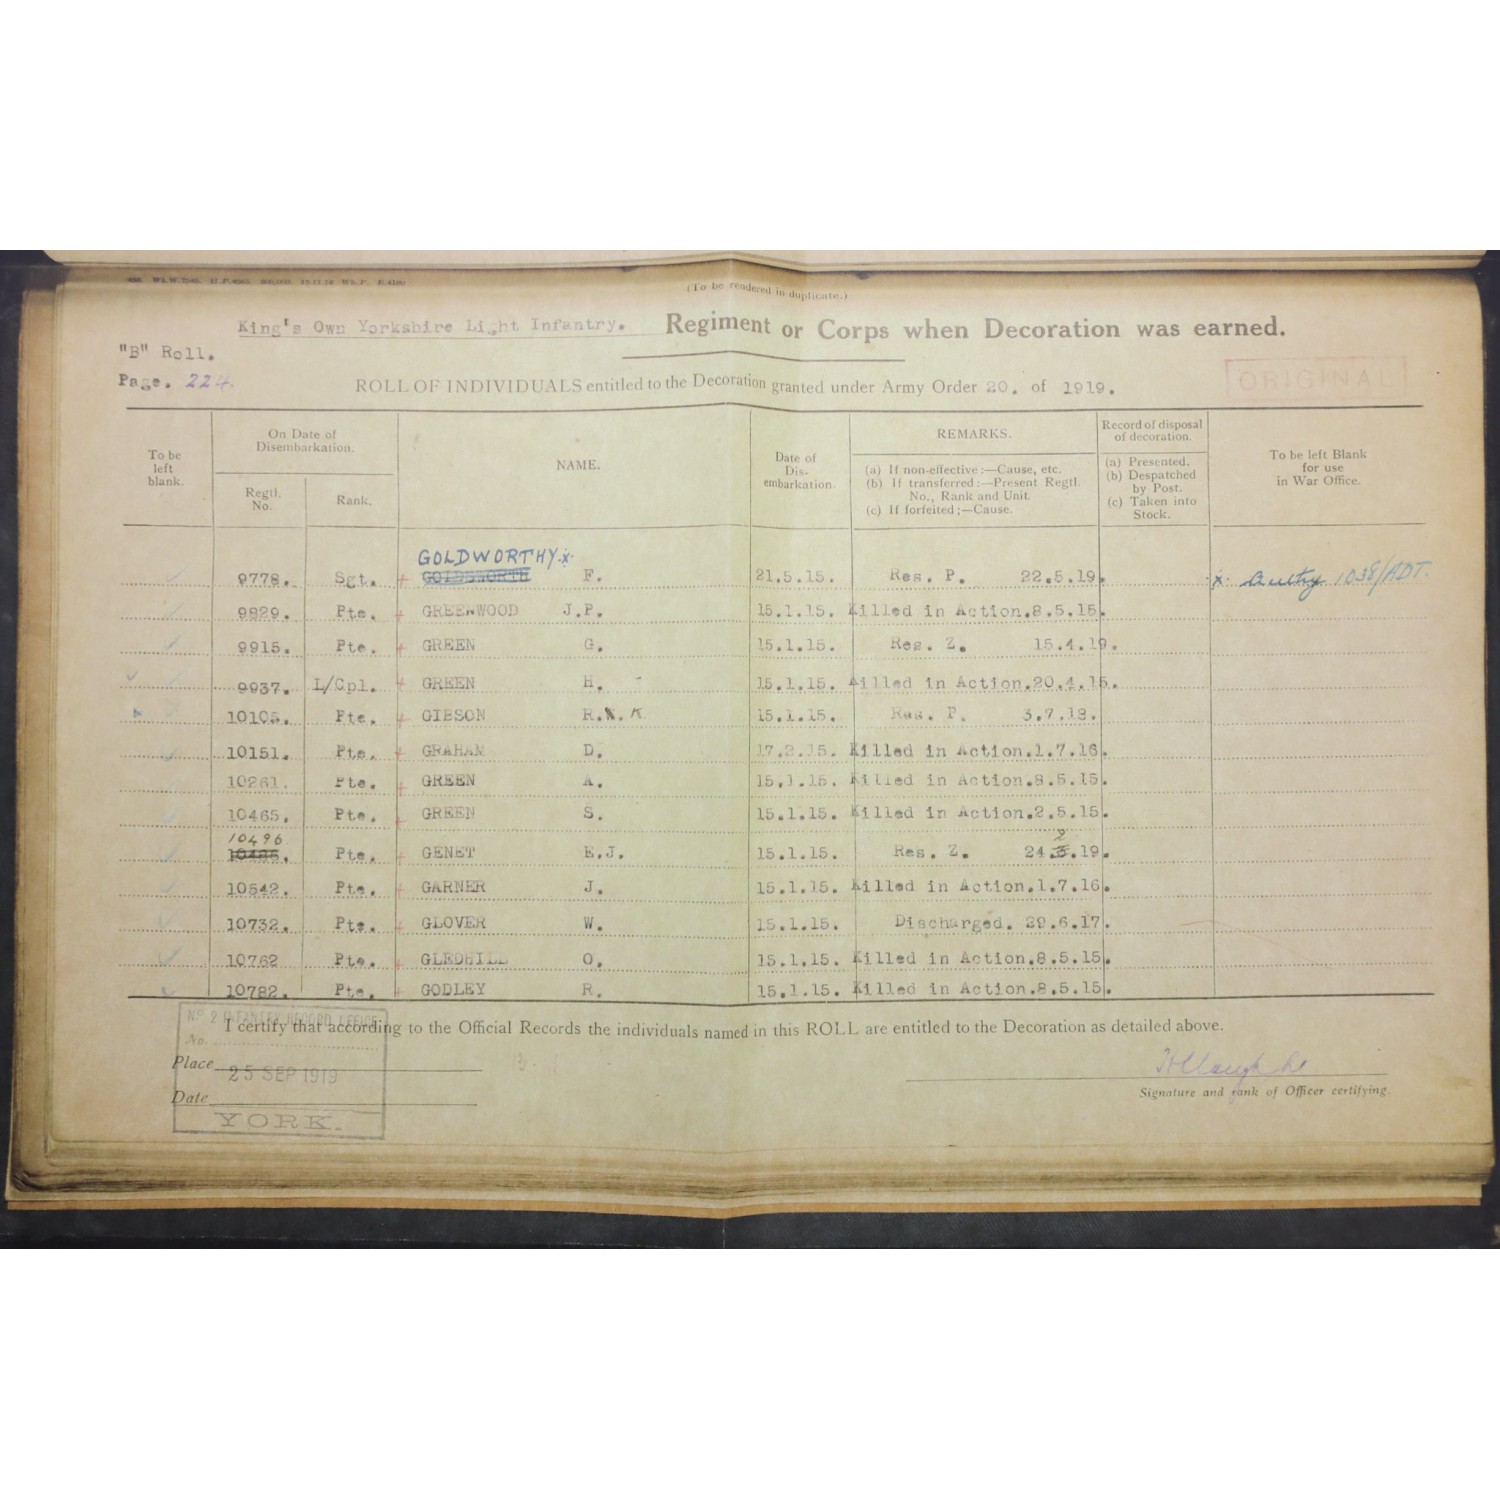 (To be rendered in duplicate.)
King's Own Yorkshire Light Infantry. Regiment or Corps when Decoration was earned.
"B" Roll.
Page. 224.
ROLL OF INDIVIDUALS entitled to the Decoration granted under Army Order 20. of 1919.
ORIGINAL
To be left blank.
On Date of Disembarkation.
Regtl. No.
Rank.
NAME.
Date of Dis-embarkation.
REMARKS.
(a) If non-effective:—Cause, etc.
(b) If transferred:—Present Regtl. No., Rank and Unit.
(c) If forfeited;—Cause.
Record of disposal of decoration.
(a) Presented.
(b) Despatched by Post.
(c) Taken into Stock.
To be left Blank for use in War Office.
GOLDWORTHY x
9778. Sgt. + GOLDSWORTH F. 21.5.15. Res. P. 22.5.19. x 1038/ADT.
9829. Pte. + GREENWOOD J.P. 15.1.15. Killed in Action.8.5.15.
9915. Pte. + GREEN G. 15.1.15. Res. Z. 15.4.19.
9937. L/Cpl. + GREEN H. 15.1.15. Killed in Action.20.4.15.
10105. Pte. + GIBSON R. K 15.1.15. Res. P. 3.7.18.
10151. Pte. + GRAHAM D. 17.2.15. Killed in Action.1.7.16.
10261. Pte. + GREEN A. 15.1.15. Killed in Action.8.5.15.
10465. Pte. + GREEN S. 15.1.15. Killed in Action.2.5.15.
10496 2
Pte. + GENET E.J. 15.1.15. Res. Z. 24. .19.
10642. Pte. + GARNER J. 15.1.15. Killed in Action.1.7.16.
10732. Pte. + GLOVER W. 15.1.15. Discharged. 29.6.17.
10762 Pte. + GLEDHILL O. 15.1.15. Killed in Action.8.5.15.
10782. Pte. + GODLEY R. 15.1.15. Killed in Action.8.5.15.
No 2 INFANTRY RECORD OFFICE
I certify that according to the Official Records the individuals named in this ROLL are entitled to the Decoration as detailed above.
No.
Place
25 SEP 1919
Signature and rank of Officer certifying.
Date
YORK.